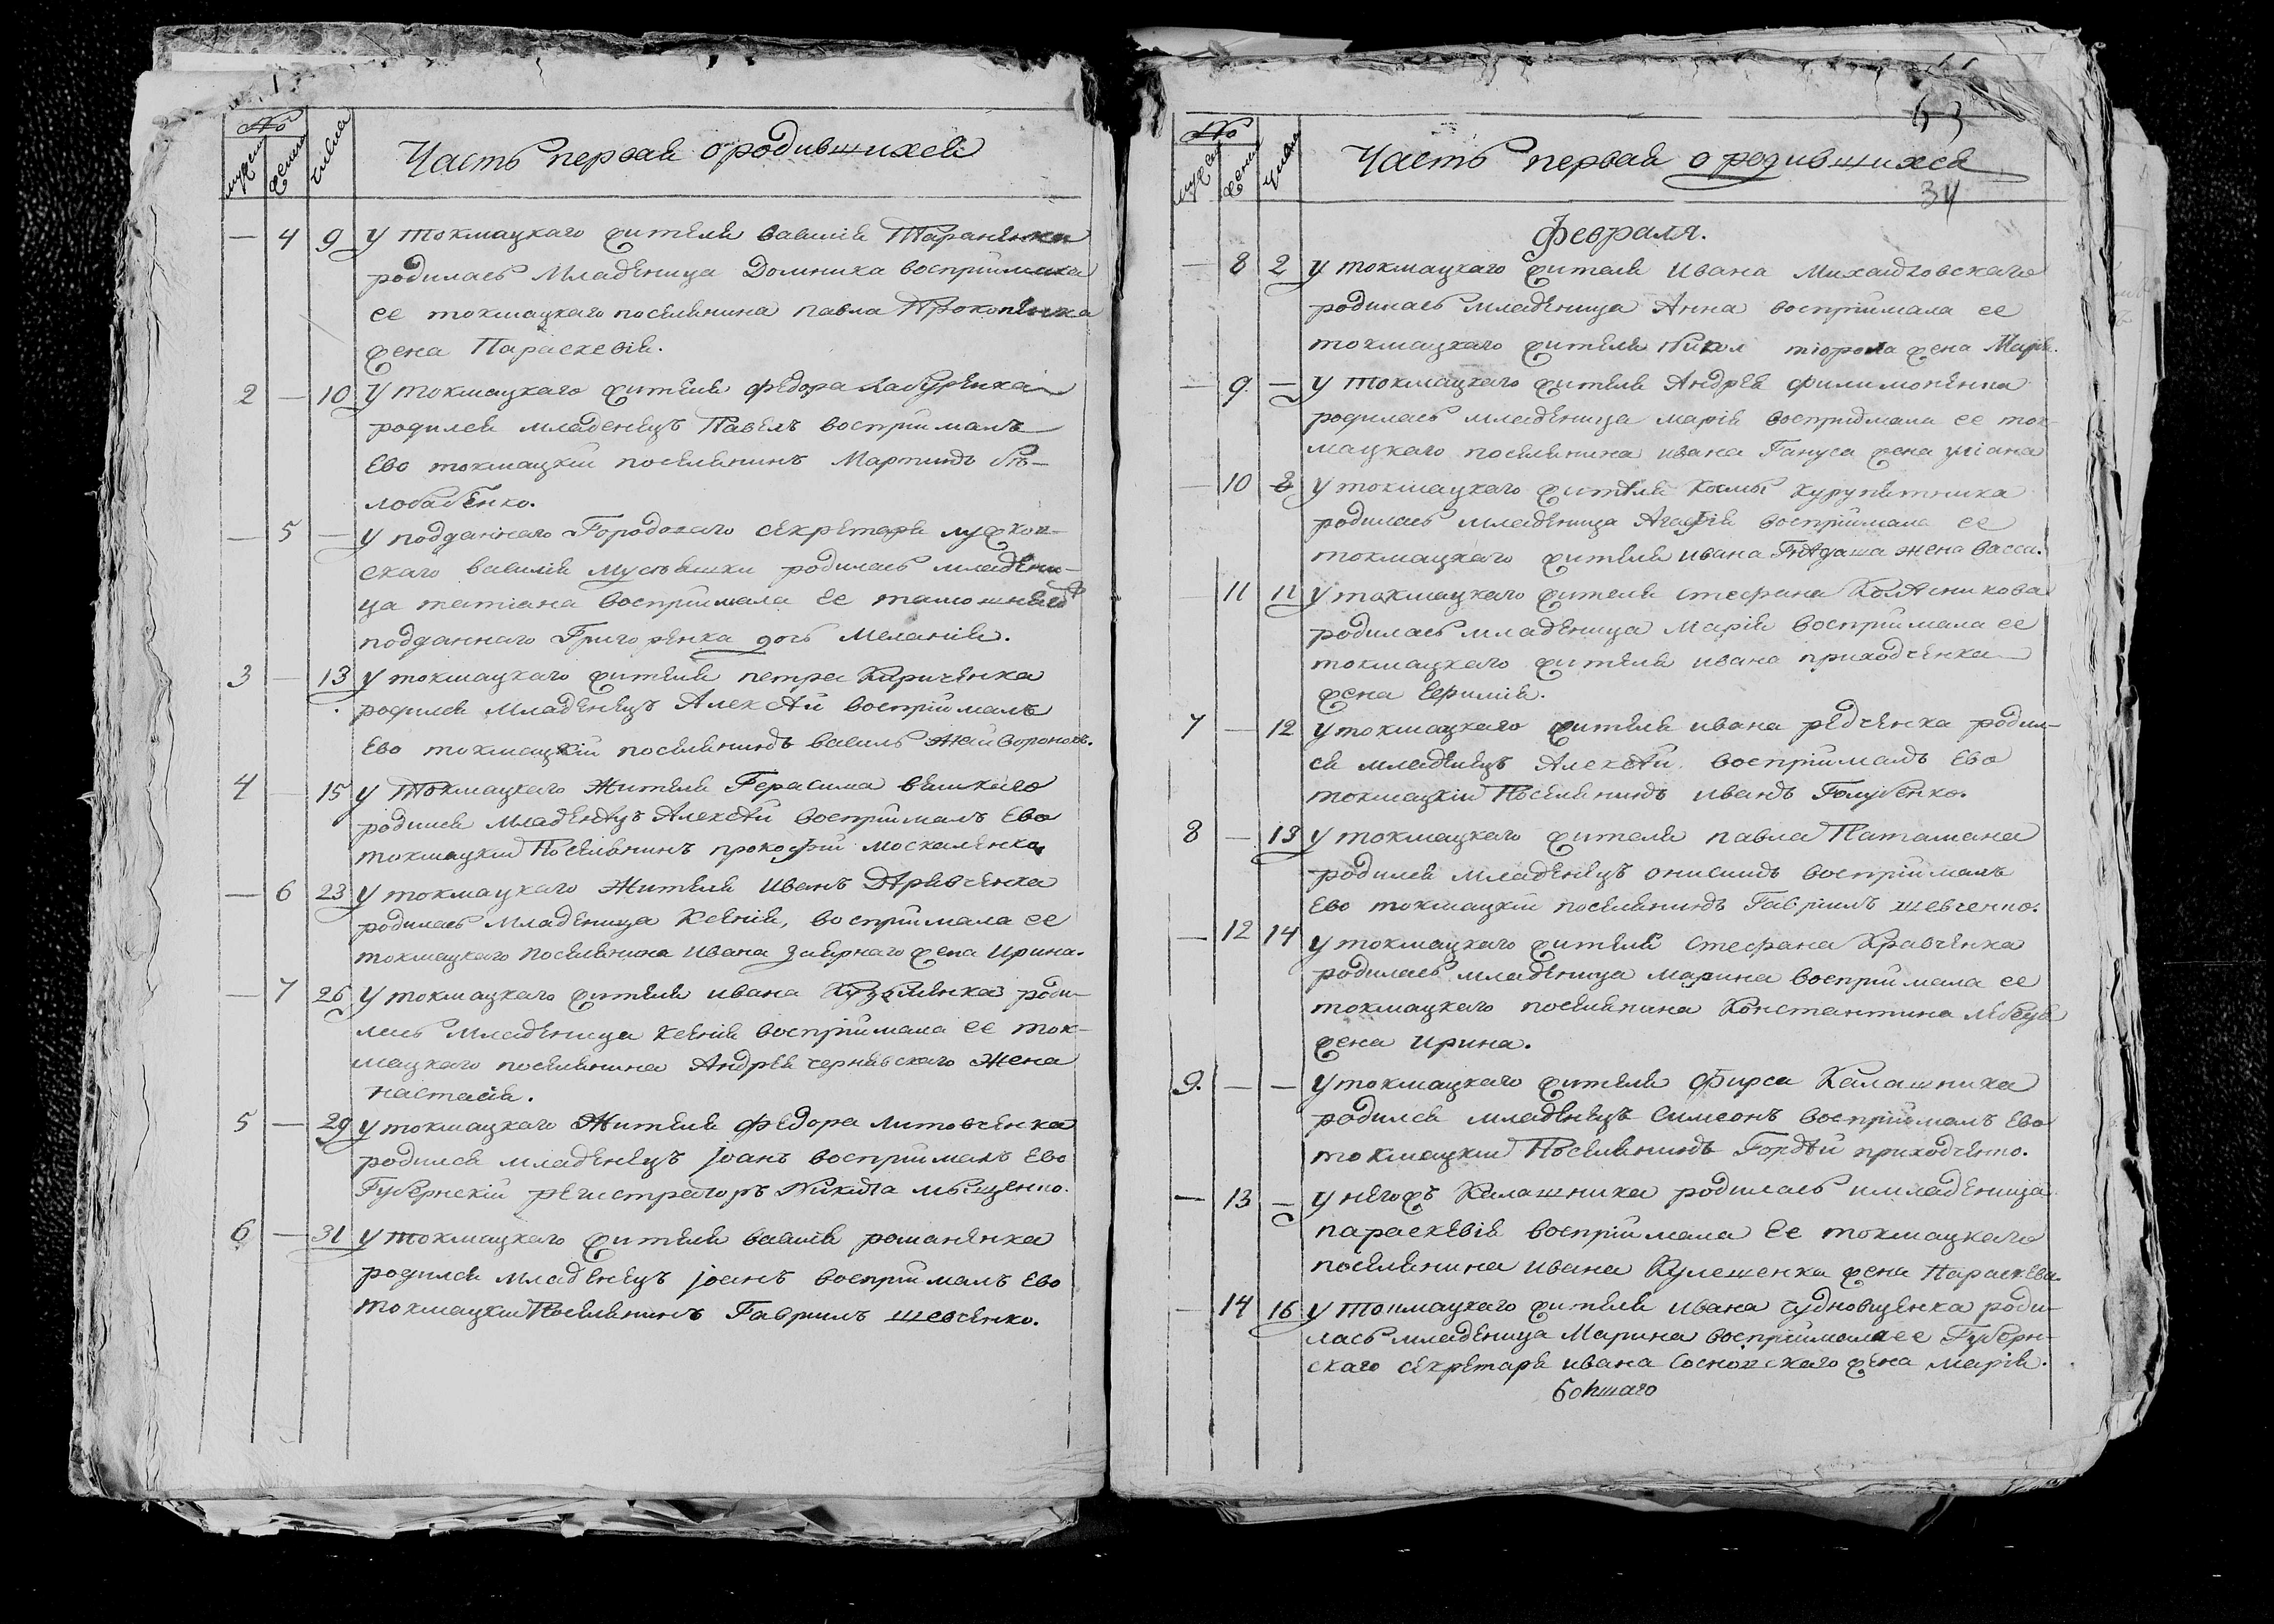 №
мужеска женска числа
Часть первая о родившихся
— 4 9 У токмацкаго жителя василія Тараненка
родилась младеница Домника воспріймала
ее токмацкаго поселянина павла Прокопенка
жена Параскевія.
2 — 10 У токмацкаго жителя федора
родился младенецъ Павелъ воспріймалъ
ево токмацкій поселянинъ Мартинъ Бѣ-
лобабенко.
— 5 — У подданнаго Городоваго секретаря
скаго василія родилась младени-
ца татіана воспріймала ее тамошняго
подданнаго Григоренка дочь Меланія.
3 — 13 У токмацкаго жителя петра Кириченка
родился младенецъ Алексѣй воспріймалъ
ево токмацкій поселянинъ василь Жайворонокъ.
4 — 15 У токмацкаго жителя Герасима великаго
родился младенецъ Алексѣй воспріймалъ ево
токмацкій поселянинъ прокофій москаленко
— 6 23 У токмацкаго жителя иванъ
родилась младеница Ксенія, воспріймала ее
токмацкаго поселянина ивана жена ирина.
— 7 26 У токмацкаго жителя ивана Кузменка роди-
лась младеница ксенія воспріймала ее ток-
мацкаго поселянина Андрея чернявскаго жена
настасія.
5 — 29 У токмацкаго жителя федора литовченка
родился младенецъ јоанъ воспріймалъ ево
Губернскій регистраторъ Никита
6 — 31 У токмацкаго жителя василія романенка
родился младенецъ јоанъ воспріймалъ ево
токмацкій поселянинъ Гавриилъ шевченко.
63
№
мужеска женска числа
Часть первая о родившихся
34
февраля.
— 8 2 У токмацкаго жителя ивана Михайловскаго
родилась младеница Анна воспріймала ее
токмацкаго жителя жена Марія.
— 9 — У токмацкаго жителя Андрея филимоненка
родилась младеница марія воспріймала ее ток-
мацкаго поселянина ивана Гануса жена уліана
— 10 8 У токмацкаго жителя космы курупятника
родилась младеница Агафія воспріймала ее
токмацкаго жителя ивана Гнѣдаша жена васса.
— 11 11 У токмацкаго жителя стефана Колѣсникова
родилась младеница Марія воспріймала ее
токмацкаго жителя ивана приходченка
жена ефимія.
7 — 12 У токмацкаго жителя ивана редченка родил-
ся младенецъ Алексѣй воспріймалъ ево
токмацкій поселянинъ иванъ Голубенко.
8 — 13 У токмацкаго жителя павла Паталаана
родился младенецъ онисимъ воспріймалъ
ево токмацкій поселянинъ Гавріилъ шевченко.
— 12 14 У токмацкаго жителя стефана Кравченка
родилась младеница марина воспріймала ее
токмацкаго поселянина Константина
жена ирина.
9. — — У токмацкаго жителя фирса Калашника
родился младенецъ симеонъ воспріймалъ ево
токмацкій поселянинъ Гордѣй приходченко.
— 13 — У негожъ Калашника родилась и младеница
параскевія воспріймала ее токмацкаго
поселянина ивана Кулешенка жена Параскева.
— 14 16 У токмацкаго жителя ивана чудновщенка роди-
лась младеница Марина воспріймала ее Губерн-
скаго секретаря ивана Сосновскаго жена марія.